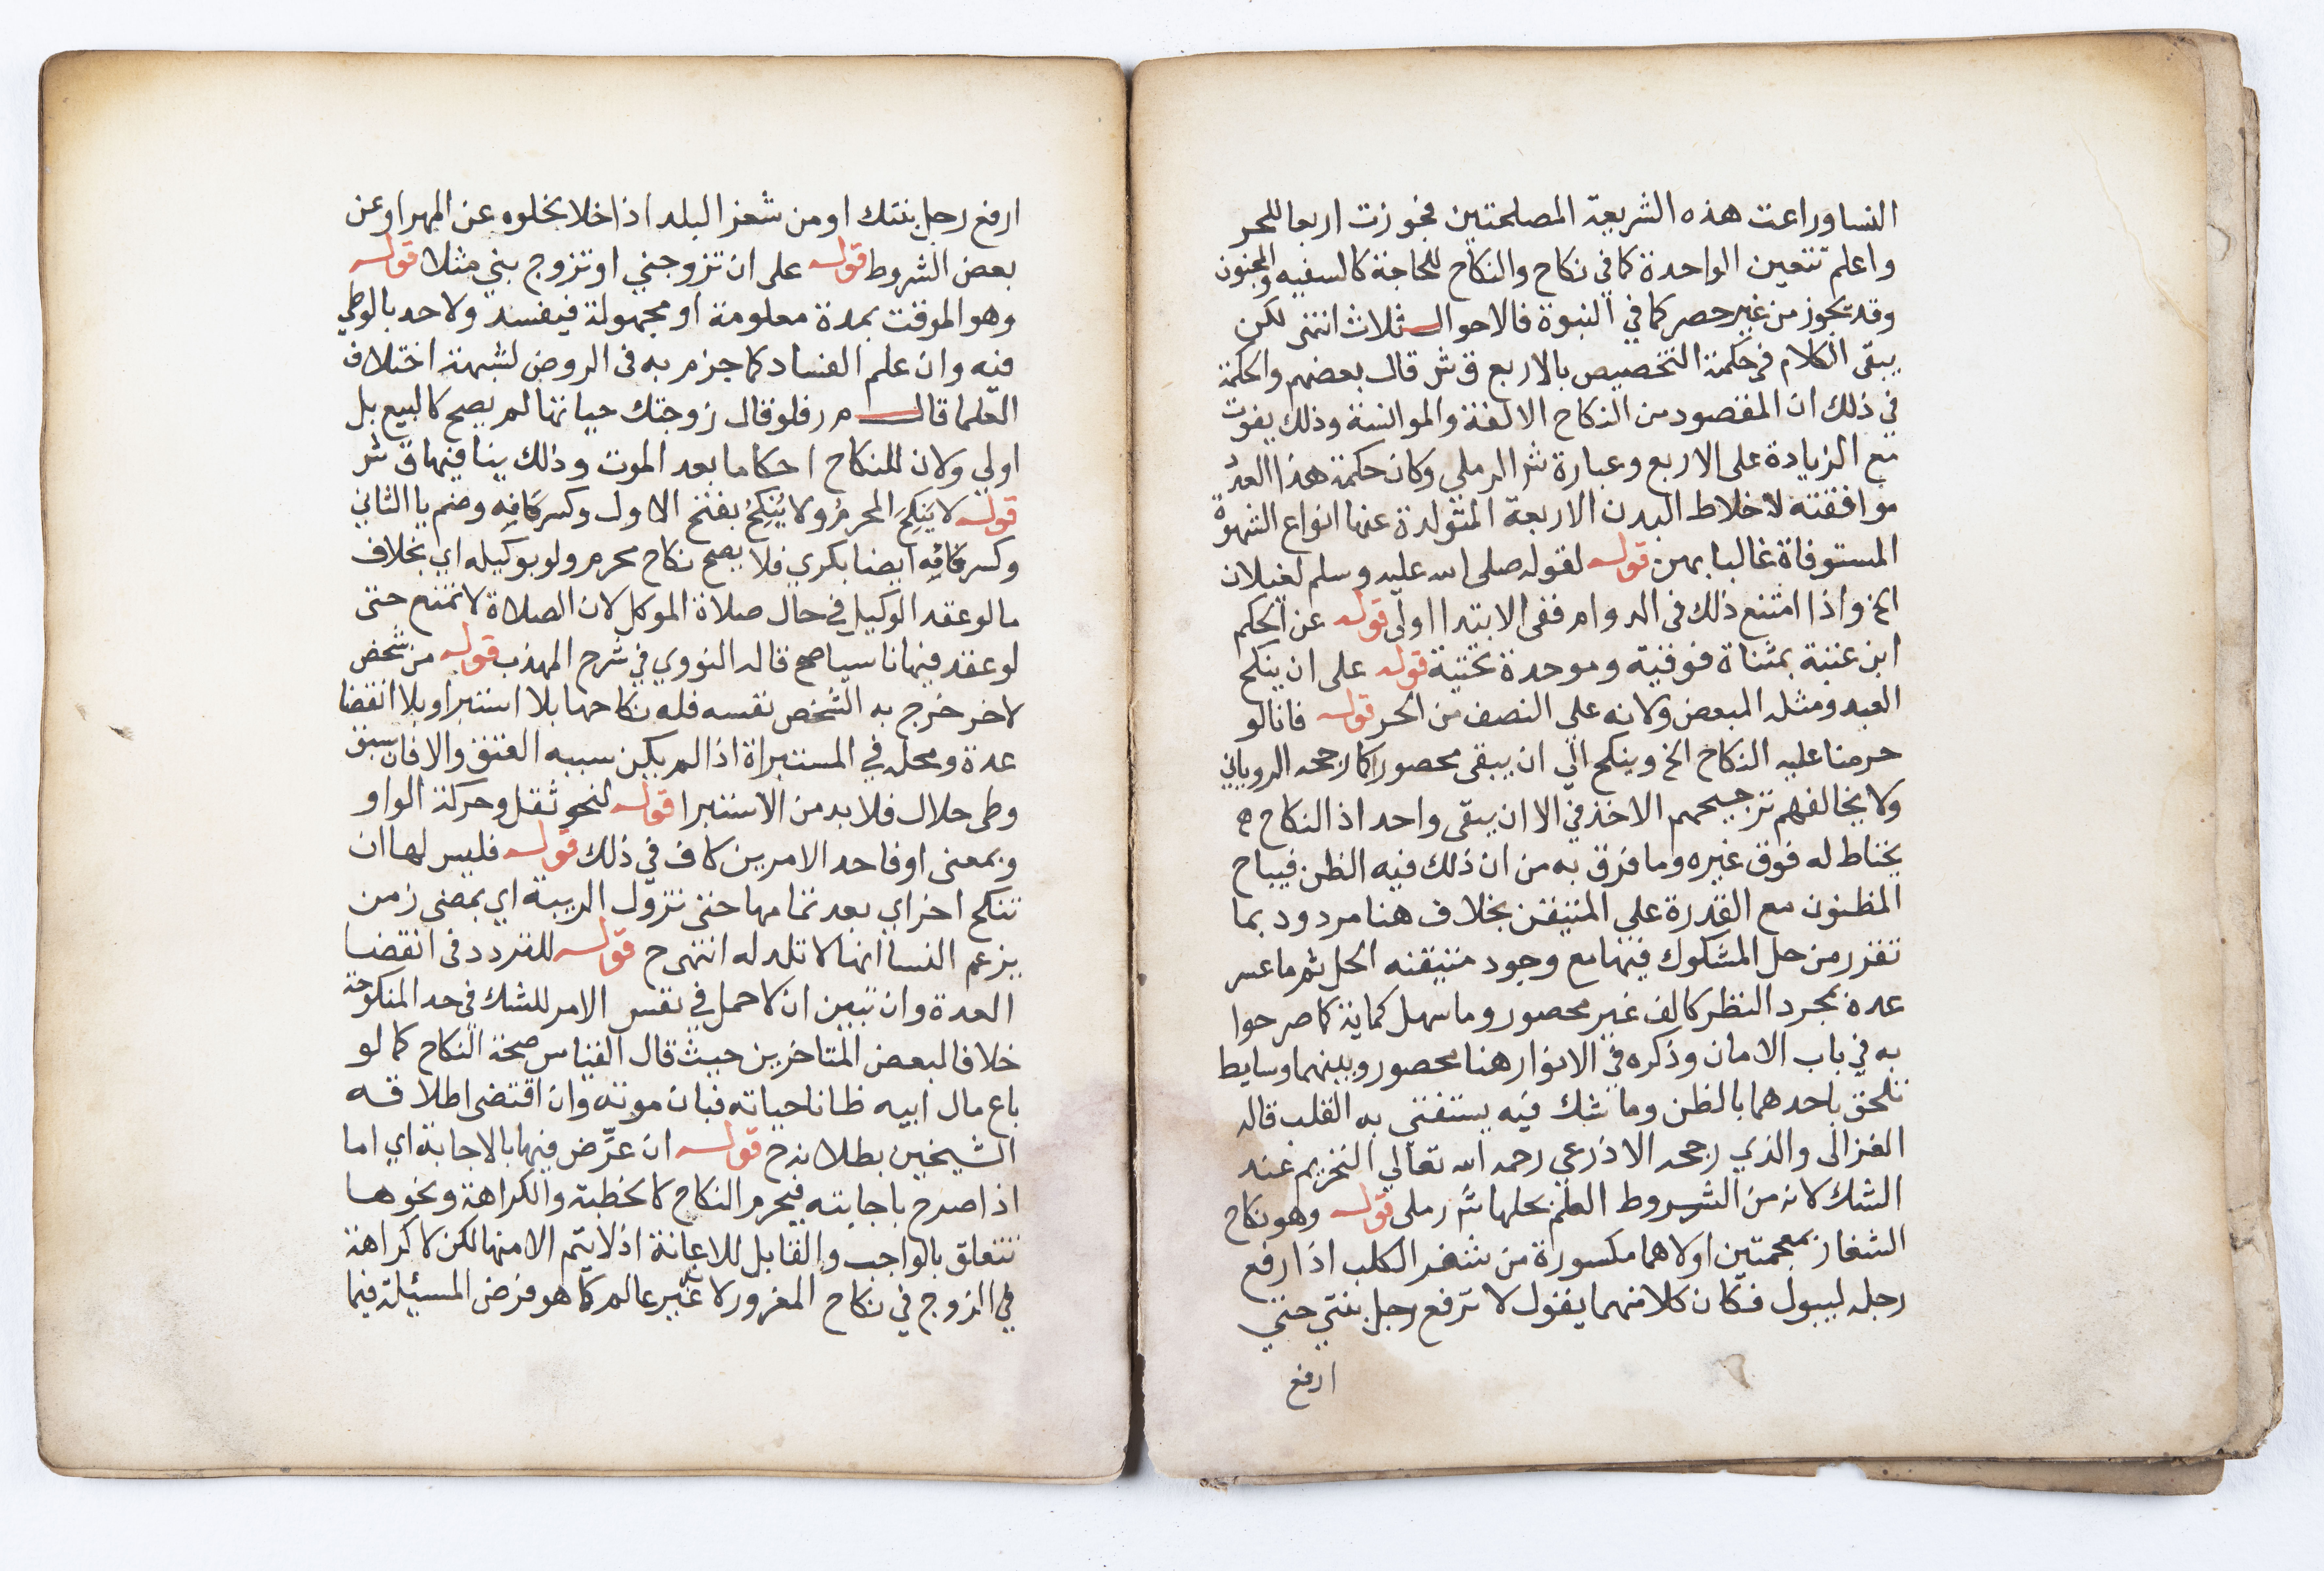 النسا وراعت هذه الشريعة المصلحتين فجوزت اربعا للحر
واعلم تتعين الواحدة كما في نكاح والنكاح للحاجة كالسفيه والمجنون
وقد يجوز من غير حصر كما في النبوة فالاحوال ثلاث انتهى لكن
يبقى الكلام في حكمة التخصيص بالاربع ق ش قال بعضهم والحكمة
في ذلك ان المقصود من النكاح الالفة والموانسة وذلك يفوت
مع الزيادة على الاربع وعبارة ش الرملي وكان حكمة هذا العدد
موافقته لاخلاط البدن الاربعة المتولدة عنها انواع الشهوة
المستوفاة غالبا بهن قوله لقوله صلى الله عليه وسلم لغيلان
الخ واذا امتنع ذلك في الدوام ففي الابتدا اولى قوله عن الحكم
ابن عتبة بمثناة فوقية وموحدة تحتية قوله على ان ينكح
العبد ومثله المبعض ولانه على النصف من الحر قوله فانا لو
حرمنا عليه النكاح الخ وينكح الي ان يبقى محصورا كما رجحه الروياني
ولا يخالفهم ترجيحهم الاخذ في الا ان يبقى واحد اذ النكاح
يحتاط له فوق غيره وما فرق به من ان ذلك فيه الظن فيباح
المظنون مع القدرة على المتيقن بخلاف هنا مردود بما
تقرر من حل المشكوك فيها مع وجود متيقنه الحل ثم ما عسر
عده بمجرد النظر كالف غير محصور وما سهل كماية كما صرحوا
به في باب الامان وذكره في الانوار هنا محصور وبينهما وسايط
تلحق باحدهما بالظن وما شك فيه يستفتى به القلب قاله
الغزالى والذي رجحه الاذرعي رحمه الله تعالي التحريم عند
الشك لانه من الشروط العلم بحلها ش رملي قوله وهو نكاح
الشغار بمعجمتين اولاهما مكسورة من شغر الكلب اذا رفع
رجله ليبول فكان كلا منهما يقول لا ترفع رجل بنتي حتي
ارفع
ارفع رجل بنتك او من شغر البلد اذا خلا بخلوه عن المهر او عن
بعض الشروط قوله على ان تزوجني او تزوج بني مثلا قوله
وهو الموقت بمدة معلومة او مجهولة فيفسد ولا حد بالوطي
فيه وان علم الفساد كما جزم به في الروض لشبهة اختلاف
العلما قال م ر فلو قال زوجتك حياتها لم يصح كالبيع بل
اولي ولان للنكاح احكاما بعد الموت وذلك ينافيها ق ش
قوله لا يَنكِحَ المحرمُ ولا يُنكِحُ بفتح الاول وكسر كَافِهِ وضم يا الثاني
وكسر كافِهِ ايضا بكري فلا يصح نكاح محرم ولو بوكيله اي بخلاف
ما لو عقد الوكيل في حال صلاة الموكل لان الصلاة لا تمنع حتى
لو عقد فيها ناسيا صح قاله النووي في شرح المهذب قوله من شخص
لاخر خرج به الشخص نفسه فله نكاحها بلا استبرا وبلا انقضا
عدة ومحله في المستبراة اذا لم يكن سببه العتق والا فان سبق
وطى حلال فلا بد من الاستبرا قوله لنحو ثقل وحركة الواو
وبمعنى او فاحد الامرين كاف في ذلك قوله فليس لها ان
تنكح اخر اي بعد تمامها حتى تزول الريبة اي بمضي زمن
يزعم النسا انها لا تلد له انتهى ح قوله للتردد في انقضا
العدة وان تبين ان لا حمل في نفس الامر للشك في حد المنكوحة
خلافا لبعض المتاخرين حيث قال القياس صحة النكاح كما لو
باع مال ابيه ظانا حياته فبان موته وان اقتضى اطلاقه
الشيخين بطلانه ح قوله ان عرَّض فيها بالاجابة اي اما
اذا صرح باجابته فيحرم النكاح كالخطبة والكراهة ونحوها
تتعلق بالواجب والقابل للاعانة اذ لا يتم الا منها لكن لا كراهة
في الزوج في نكاح المغرور لا غير عالم كما هو فرض المسئيلة فيما